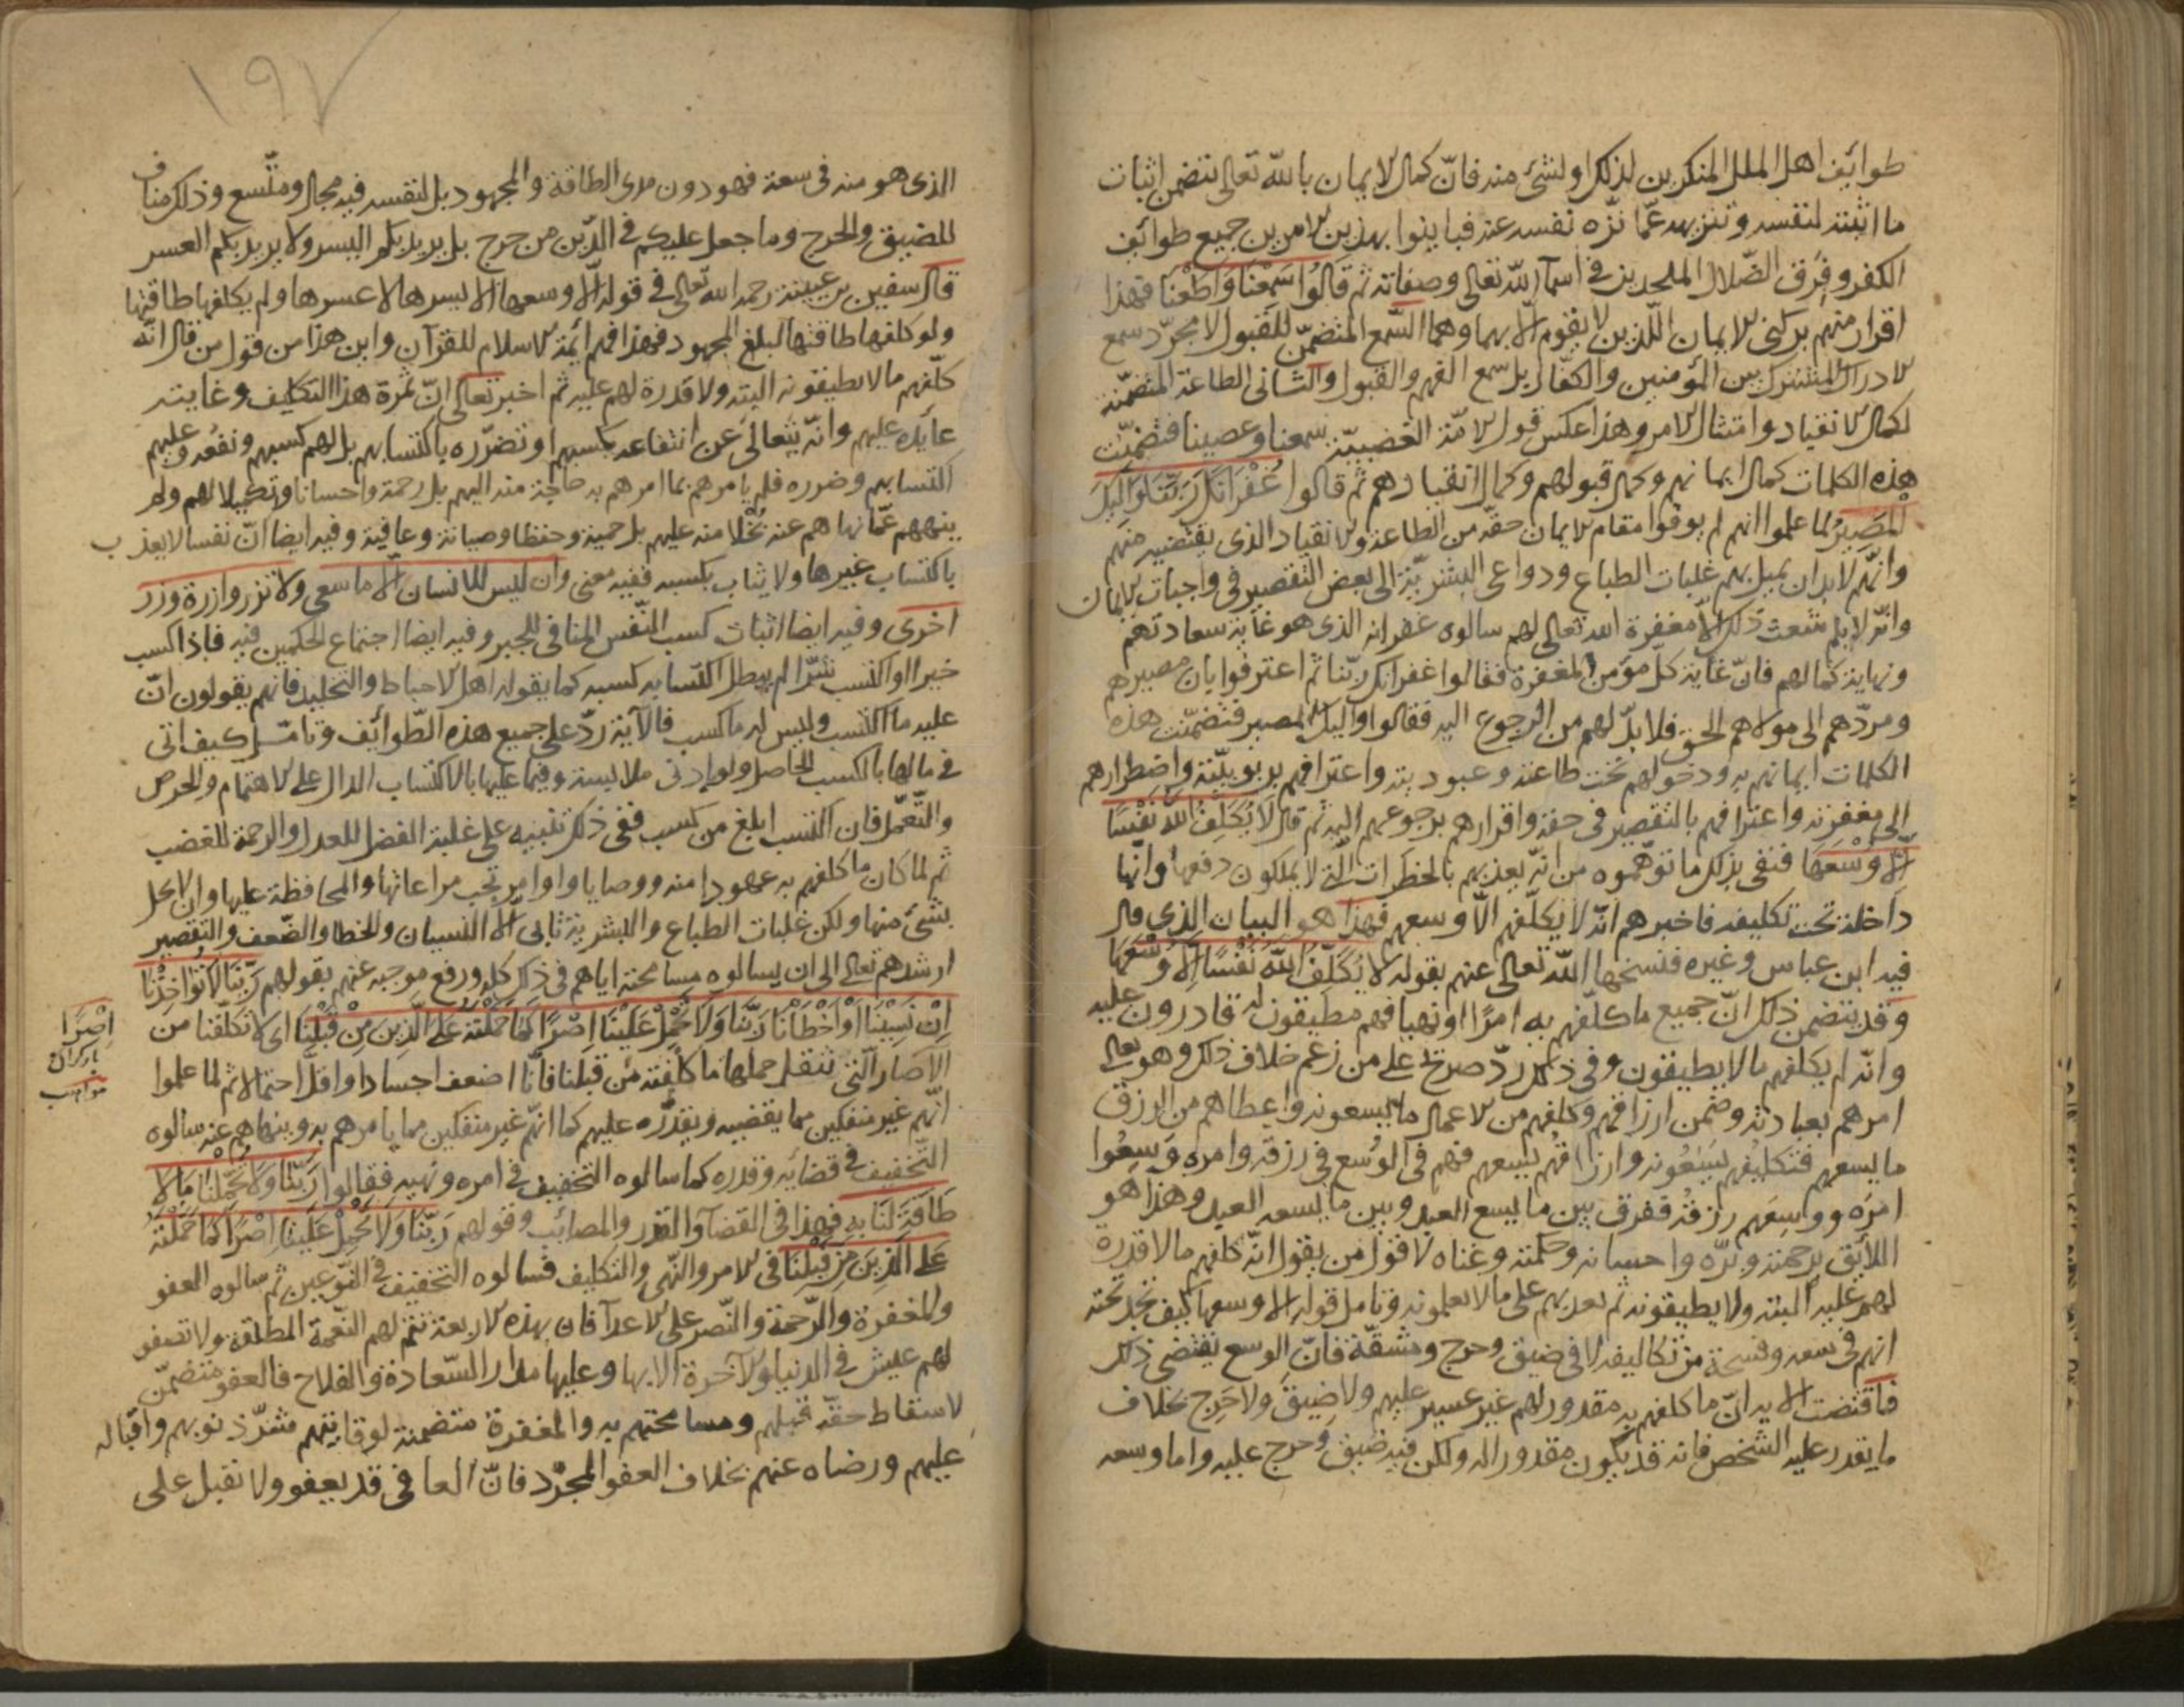 طوائف اهل الملل المنكرين لذلك او لشئ منه فانّ كمال الايمان بالله تعالى يتضمن اثبات
ما اثبته لنفسه وتنزيهه عمّا نزّه نفسه عنه فباينوا بهذين الامرين جميع طوائف
الكفر وفرق الضّلال الملحدين في اسماء الله تعالى وصفاته ثم قَالُوا سَمِعْنَا وَاَطَعْنَا فهذا
اقرار منهم بركني الايمان اللّذين لا يقوم الّا بهما وهما السّمع المتضمّن للقبول لا مجرّد سمع
الادراك المشترك بين المؤمنين والكفّار بل سمع الفهم والقبول والثاني الطاعة المتضمّنة
لكمال الانقياد وامتثال الامر وهذا عكس قول الامّة الغضبيّة سمعنا وعصينا فتضمّنت
هذه الكلمات كمال ايمانهم وكمال قبولهم وكمال انقيادهم ثم قالوا غُفْرَانَكَ رَبَّنَا وَاِلَيْكَ
الْمَصِيرُ لما علموا انهم لم يوفوا مقام الايمان حقّه من الطاعة والانقياد الذي يقتضيه منهم
وانّهم لا بد ان يميل بهم غلبات الطباع ودواعي البشريّة الى بعض التقصير في واجبات الايمان
وانّه لا يلم شعث ذلك الّا مغفرة الله تعالى لهم سالوه غفرانه الذي هو غاية سعادتهم
ونهاية كمالهم فانّ غاية كلّ مؤمن المغفرة فقالوا غفرانك ربّنا ثم اعترفوا بان مصيرهم
ومردّهم الى مولاهم الحق فلا بدّ لهم من الرجوع اليه فقالوا واليك المصير فتضمّنت هذه
الكلمات ايمانهم به ودخولهم تحت طاعته وعبوديته واعترافهم بربوبيّته واضطرارهم
الى مغفرته واعترافهم بالتقصير في حقه واقرارهم برجوعهم اليه ثم قال لَا يُكَلِّفُ اللّٰهُ نَفْسًا
اِلَّا وُسْعَهَا فنفى بذلك ما توهّموه من انّه يعذبهم بالخطرات الّتي لا يملكون دفعها وانّها
داخلة تحت تكليفه فاخبرهم انّه لا يكلّفهم الّا وسعهم فهذا هو البيان الذي قال
فيه ابن عباس وغيره فنسخها الله تعالى عنهم بقوله لَا يُكَلِّفُ اللّٰهُ نَفْسًا اِلَّا وُسْعَهَا
وقد يتضمن ذلك انّ جميع ما كلّفهم به امرًا او نهيا فهم مطيقون له قادرون عليه
وانّه لم يكلفهم ما لا يطيقون وفي ذلك ردّ صريح على من زعم خلاف ذلك وهو تعالى
امرهم بعبادته وضمن ارزاقهم وكلفهم من الاعمال ما يسعونه واعطاهم من الرزق
ما يسعهم فتكليفُهم يَسَعُونه وارزاقهُم تسعهم فهم في الوُسْع في رزقه وامره وَسِعُوا
امرَه ووسِعَهم رزقُه ففرق بين ما يسع العبد وبين ما يسعه العبد وهذا هو
اللائق برحمته وبرّه واحسانه وحكمته وغناه لا قول من يقول انّه كلفهم ما لا قدرة
لهم عليه البتة ولا يطيقونه ثم يعذبهم على ما لا يعلمونه وتامل قوله الا وسعها كيف تجد تحته
انهم في سعه وفسحة من تكاليفه لا في ضيق وحرج ومشقّة فانّ الوسع يقتضي ذلك
فاقتضت الاية انّ ما كلفهم به مقدور لهم غير عسير عليهم ولا ضيق ولا حرج بخلاف
ما يقدر عليه الشخص فانه قد يكون مقدورا له ولكن فيه ضيق وحرج عليه واما وسعه
١٩٧
الذى هو منه فى سعة فهو دون مدى الطاقة والمجهود بل لنفسه فيه مجال ومتّسع وذلك مناف
للضيق والحرج وما جعل عليكم في الدّين من حرج بل يريد بكم اليسر ولا يريد بكم العسر
قال سفين بن عيينة رحمه الله تعالى في قوله الّا وسعها الا يسرها لا عسرها ولم يكلفها طاقتها
ولو كلفها طاقتها لبلغ المجهود فهذا فهم ائمة الاسلام للقرآن واين هذا من قول من قال انّه
كلّفهم ما لا يطيقونه البتة ولا قدرة لهم عليه ثم اخبر تعالى انّ ثمرة هذا التكليف وغايته
عايدة عليهم وانّه يتعالى عن انتفاعه بكسبهم او تضرّره باكتسابهم بل لهم كسبهم ونفعه وعليهم
اكتسابهم وضرره فلم يامرهم بما امرهم به حاجة منه اليهم بل رحمة واحسانا وتكميلا لهم ولم
ينههم عمّا نهاهم عنه بُخْلا منه عليهم بل حمية وحفظا وصيانة وعافية وفيه ايضا انّ نفسا لا يعذب
باكتساب غيرها ولا يثاب بكسبه ففيه معنى وان ليس للانسان الّا ما سعى ولا تزر وازرة وزر
اخرى وفيه ايضا اثبات كسب النّفس المنافي للجبر وفيه ايضا اجتماع الحكمين فيه فاذا كسب
خيرا او اكتسب شرّا لم يبطل اكتسابه كسبه كما يقوله اهل الاحباط والتخليد فانهم يقولون انّ
عليه ما اكتسب وليس له ما كسب فالآية ردّ على جميع هذه الطّوائف وتامّل كيف اتى
في ما لها بالكسب الحاصل ولو لادنى ملابسة وفيما عليها بالاكتساب الدال على الاهتمام والحرص
والتّعمّل فان اكتسب ابلغ من كسب ففى ذلك تنبيه على غلبة الفضل للعدل والرحمة للغضب
ثم لما كان ما كلفهم به عهودا منه ووصايا واوامر تجب مراعاتها والمحافظة عليها وان لا يخل
بشئ منها ولكن غلبات الطباع والبشرية تابى الا النسيان والخطا والضّعف والتقصير
ارشدهم تعالى الى ان يسالوه مسامحته اياهم في ذلك كله ورفع موجبه عنهم بقولهم رَبَّنَا لَا تُؤَاخِذْنَا
اِنْ نَسِينَا اَوْ اَخْطَاْنَا رَبَّنَا وَلَا تَحْمِلْ عَلَيْنَا اِصْرًا كَمَا حَمَلْتَهُ عَلَى الَّذِينَ مِنْ قَبْلِنَا اى لا تكلّفنا من
الآصار الّتي تثقل حملها ما كلّفته من قبلنا فانّا اضعف اجسادا واقلّ احتمالا ثم لما علموا
انّهم غير منفكين مما يقضيه ويقدّره عليهم كما انّهم غير منفكين مما يامرهم به وينهاهم عنه سالوه
التّخفيف في قضائه وقدره كما سالوه التخفيف في امره ونهيه فقالوا رَبَّنَا وَلَا تُحَمِّلْنَا مَا لَا
طَاقَةَ لَنَا بِهِ فهذا في القضاء والقدر والمصائب وقولهم رَبَّنَا وَلَا تَحْمِلْ عَلَيْنَا اِصْرًا كَمَا حَمَلْتَهُ
عَلَى الَّذِينَ مِنْ قَبْلِنَا في الامر والنّهي والتكليف فسالوه التخفيف في النّوعين ثم سالوه العفو
والمغفرة والرّحمة والنّصر على الاعداء فان بهذه الاربعة تتم لهم النّعمة المطلقة ولا تصفو
لهم عيش في الدنيا والآخرة الّا بها وعليها مدار السّعادة والفلاح فالعفو متضمّن
لاسقاط حقّه قبلهم ومسامحتهم به والمغفرة متضمنة لوقايتهم شرّ ذنوبهم واقباله
عليهم ورضاه عنهم بخلاف العفو المجرّد فانّ العافي قد يعفو ولا تقبل على
اِصْرًا